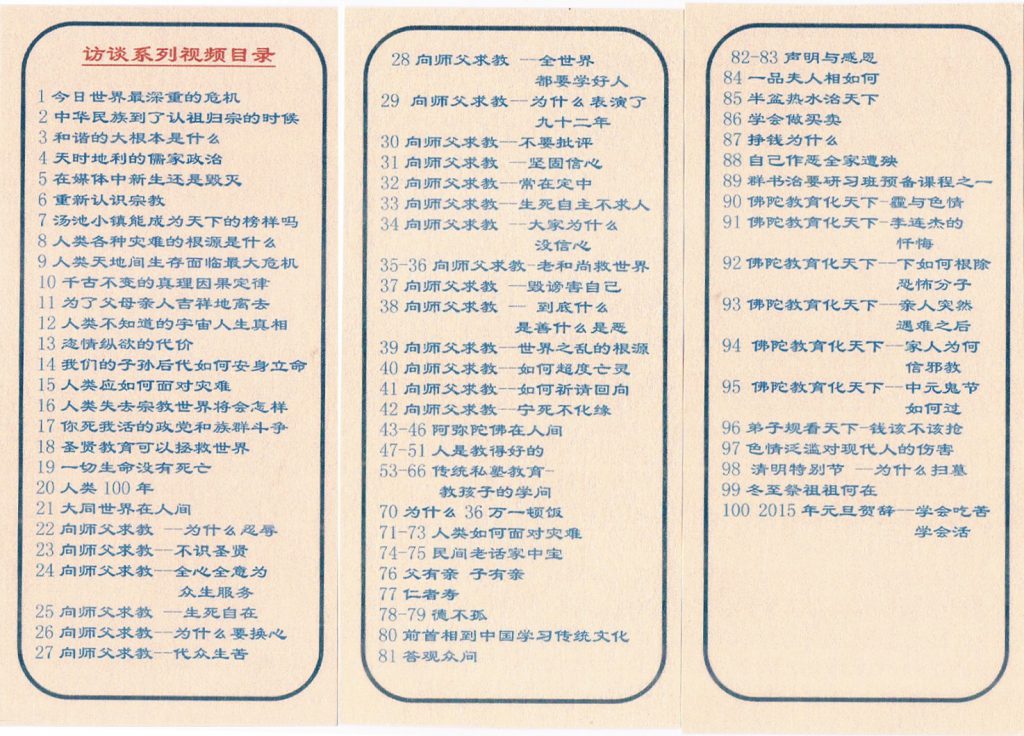 访谈系列视频目录
1 今日世界最深重的危机
2 中华民族到了认祖归宗的时候
3 和谐的大根本是什么
4 天时地利的儒家政治
5 在媒体中新生还是毁灭
6 重新认识宗教
7 汤池小镇能成为天下的榜样吗
8 人类各种灾难的根源是什么
9 人类天地间生存面临最大危机
10 千古不变的真理因果定律
11 为了父母亲人吉祥地离去
12 人类不知道的宇宙人生真相
13 恣情纵欲的代价
14 我们的子孙后代如何安身立命
15 人类应如何面对灾难
16 人类失去宗教世界将会怎样
17 你死我活的政党和族群斗争
18 圣贤教育可以拯救世界
19 一切生命没有死亡
20 人类 100 年
21 大同世界在人间
22 向师父求教 --为什么忍辱
23 向师父求教--不识圣贤
24 向师父求教--全心全意为
众生服务
25 向师父求教 --生死自在
26 向师父求教--为什么要换心
27 向师父求教--代众生苦
28 向师父求教 --全世界
都要学好人
29 向师父求教--为什么表演了
九十二年
30 向师父求教--不要批评
31 向师父求教 --坚固信心
32 向师父求教--常在定中
33 向师父求教--生死自主不求人
34 向师父求教 --大家为什么
没信心
35-36 向师父求教-老和尚救世界
37 向师父求教 --毁谤害自己
38 向师父求教 -- 到底什么
是善什么是恶
39 向师父求教--世界之乱的根源
40 向师父求教--如何超度亡灵
41 向师父求教--如何祈请回向
42 向师父求教--宁死不化缘
43-46 阿弥陀佛在人间
47-51 人是教得好的
53-66 传统私塾教育-
教孩子的学问
70 为什么 36 万一顿饭
71-73 人类如何面对灾难
74-75 民间老话家中宝
76 父有亲 子有亲
77 仁者寿
78-79 德不孤
80 前首相到中国学习传统文化
81 答观众问
82-83 声明与感恩
84 一品夫人相如何
85 半盆热水治天下
86 学会做买卖
87 挣钱为什么
88 自己作恶全家遭殃
89 群书治要研习班预备课程之一
90 佛陀教育化天下-霾与色情
91 佛陀教育化天下--李连杰的
忏悔
92 佛陀教育化天下--下如何根除
恐怖分子
93 佛陀教育化天下--亲人突然
遇难之后
94 佛陀教育化天下--家人为何
信邪教
95 佛陀教育化天下--中元鬼节
如何过
96 弟子规看天下-钱该不该抢
97 色情泛滥对现代人的伤害
98 清明特别节 --为什么扫墓
99 冬至祭祖祖何在
100 2015 年元旦贺辞--学会吃苦
学会活